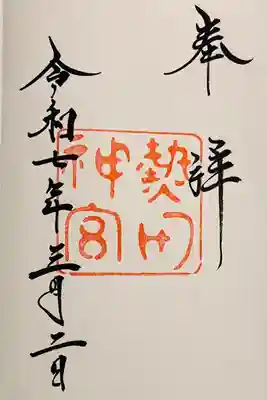 奉拝
熱田
神宮
令和七年三月二日